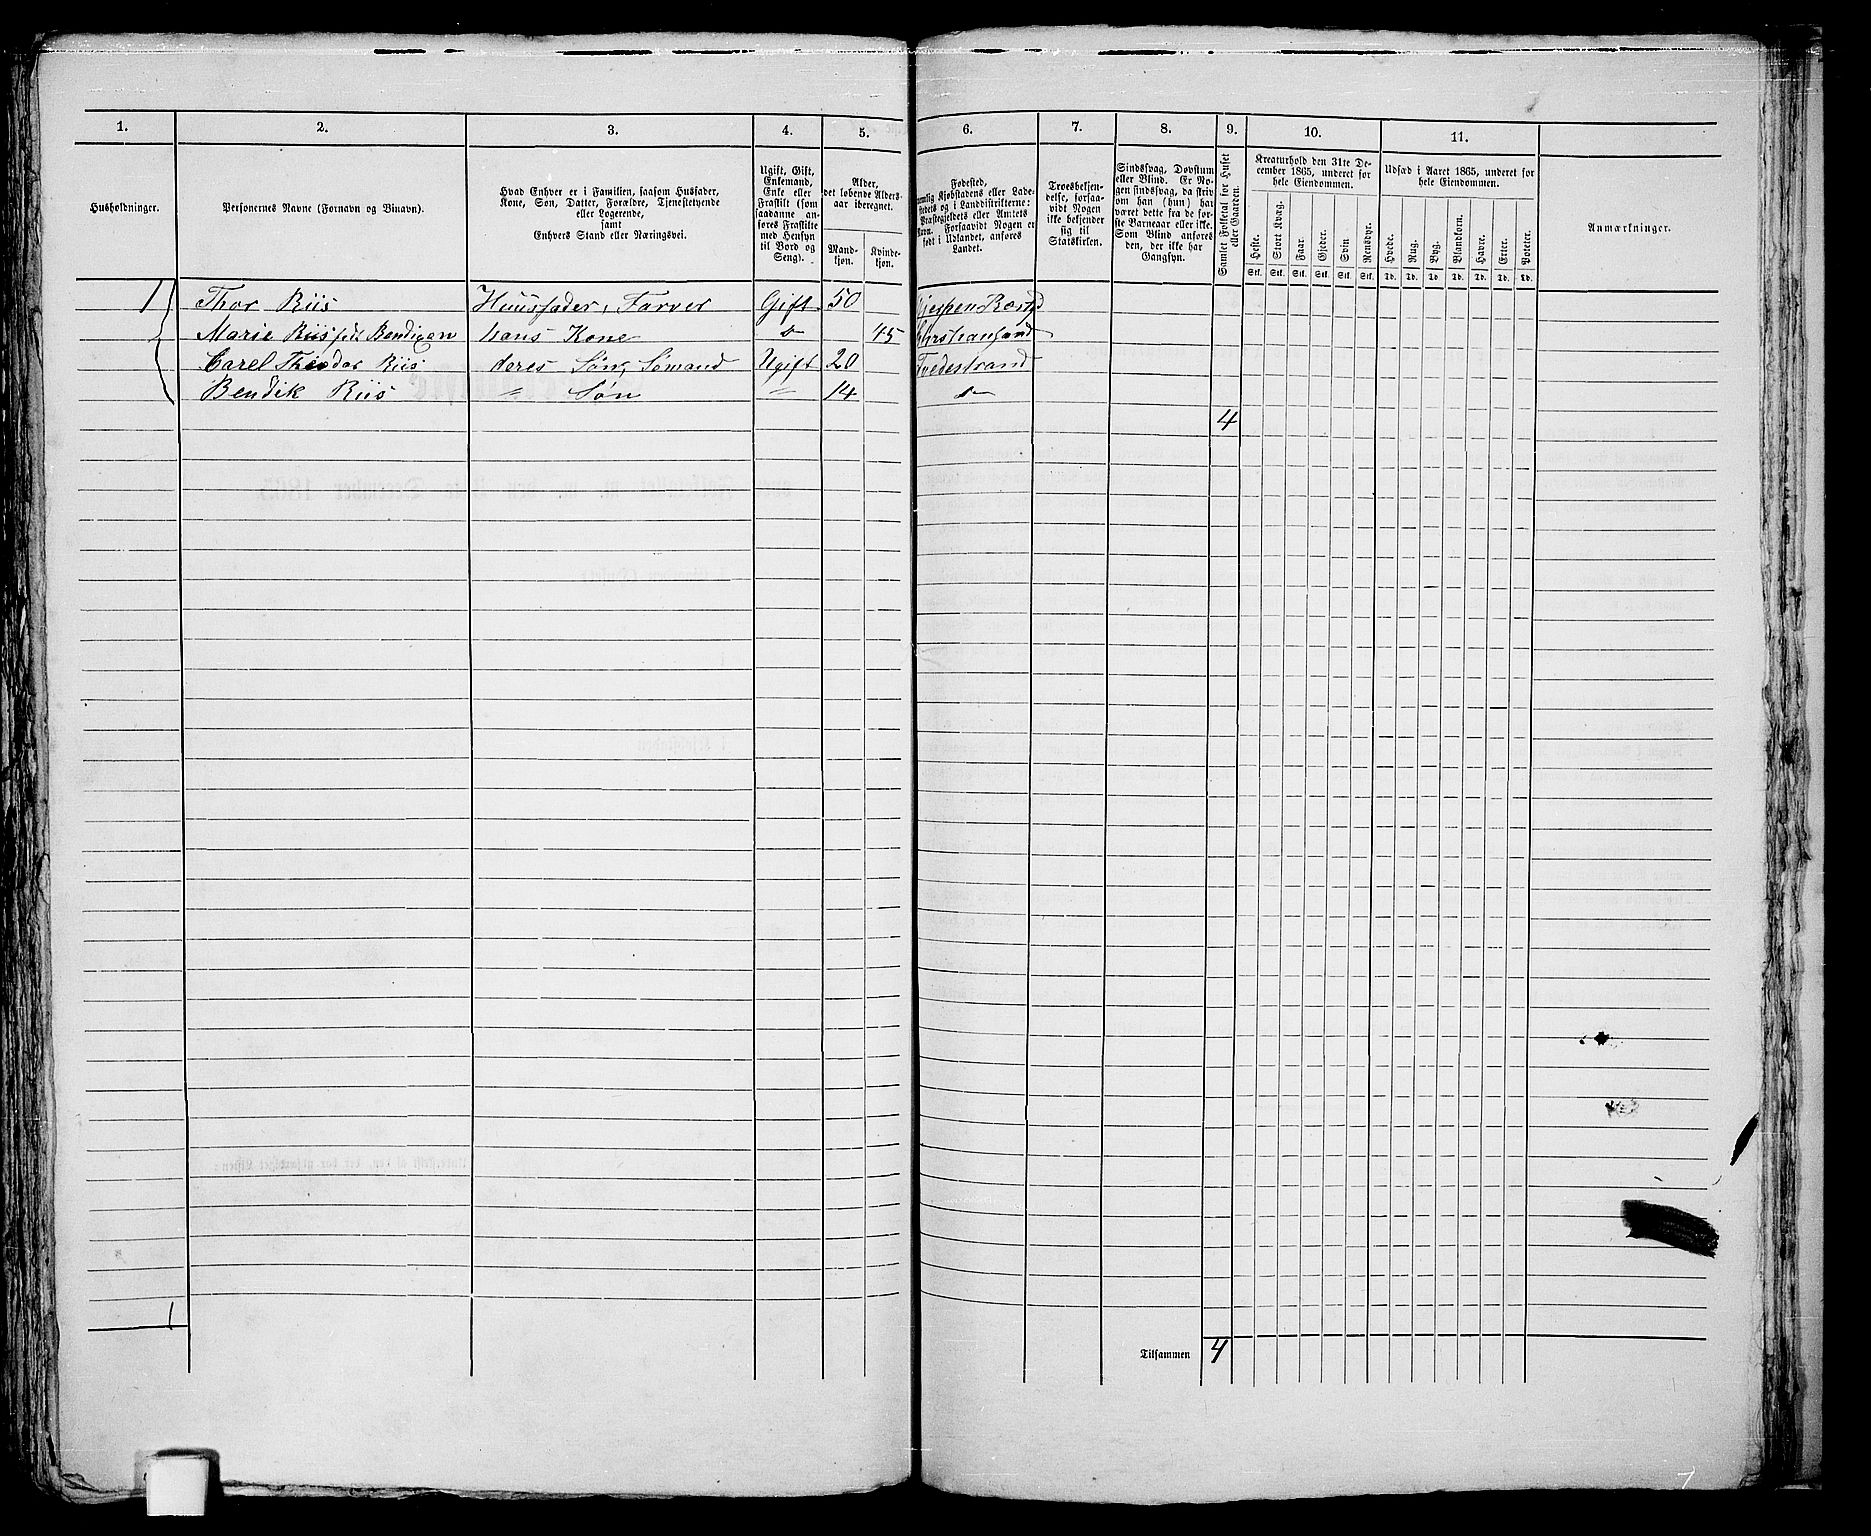 1. 2. 3. 4. 5. 6. 7. 8. 9. 10. 11.
Husholdninger.
Personernes Navne (Fornavn og Binavn).
Hvad Enhver er i Familien, saasom Husfader,
Kone, Søn, Datter, Forældre, Tjenestetyende
eller Logerende,
samt
Enhvers Stand eller Næringsvei.
Ugift, Gift,
Enkemand,
Enke eller
Fraskilt (som
saadanne an-
føres Fraskilte
med Hensyn
til Bord og
Seng).
Alder,
det løbende Alders-
aar iberegnet.
Mand-
kjøn.
Kvinde-
kjøn.
Fødested,
nemlig Kjøbstadens eller Lade-
stedets og i Landdistrikterne:
Præstegjeldets eller Amtets
Navn. Forsaavidt Nogen er
født i Udlandet, anføres
Landet.
Troesbekjen-
delse, forsaa-
vidt Nogen
ikke bekjender
sig til
Statskirken.
Sindssvag, Døvstum
eller Blind. Er No-
gen sindssvag, da skriv
om han (hun) har
været dette fra de før-
ste Barneaar eller ikke.
Som Blind anføres
den, der ikke har
Gangsyn.
Samlet Folketal for Huset
eller Gaarden.
Kreaturhold den 31te De-
cember 1865, underet for
hele Eiendommen.
Heste. Stort Kvæg. Faar. Gjeder. Svin Rensdyr.
Stk. Stk. Stk. Stk. Stk. Stk.
Udsæd i Aaret 1865, underet for
hele Eiendommen.
Hvede. Rug. Byg. Blandkorn. Havre. Erter. Poteter.
Td. Td. Td Td. Td. Td. Td.
Anmærkninger.
1 Thor Riis Huusfader, Farver Gift 50
Marie Riis født hans Kone 45 Christiansand
Carel Theodor Riis deres Søn, Sømand Ugift 20 Tvedestrand
Bendik Riis " Søn " 14
4
1
Tilsammen 4